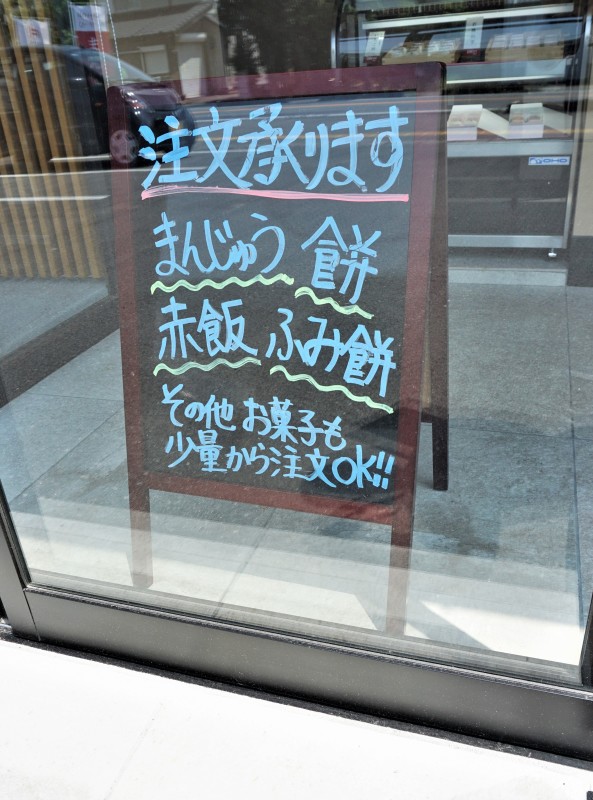 注文承ります
まんじゅう 餅
赤飯 ふみ餅
その他 お菓子も
少量から注文OK!!